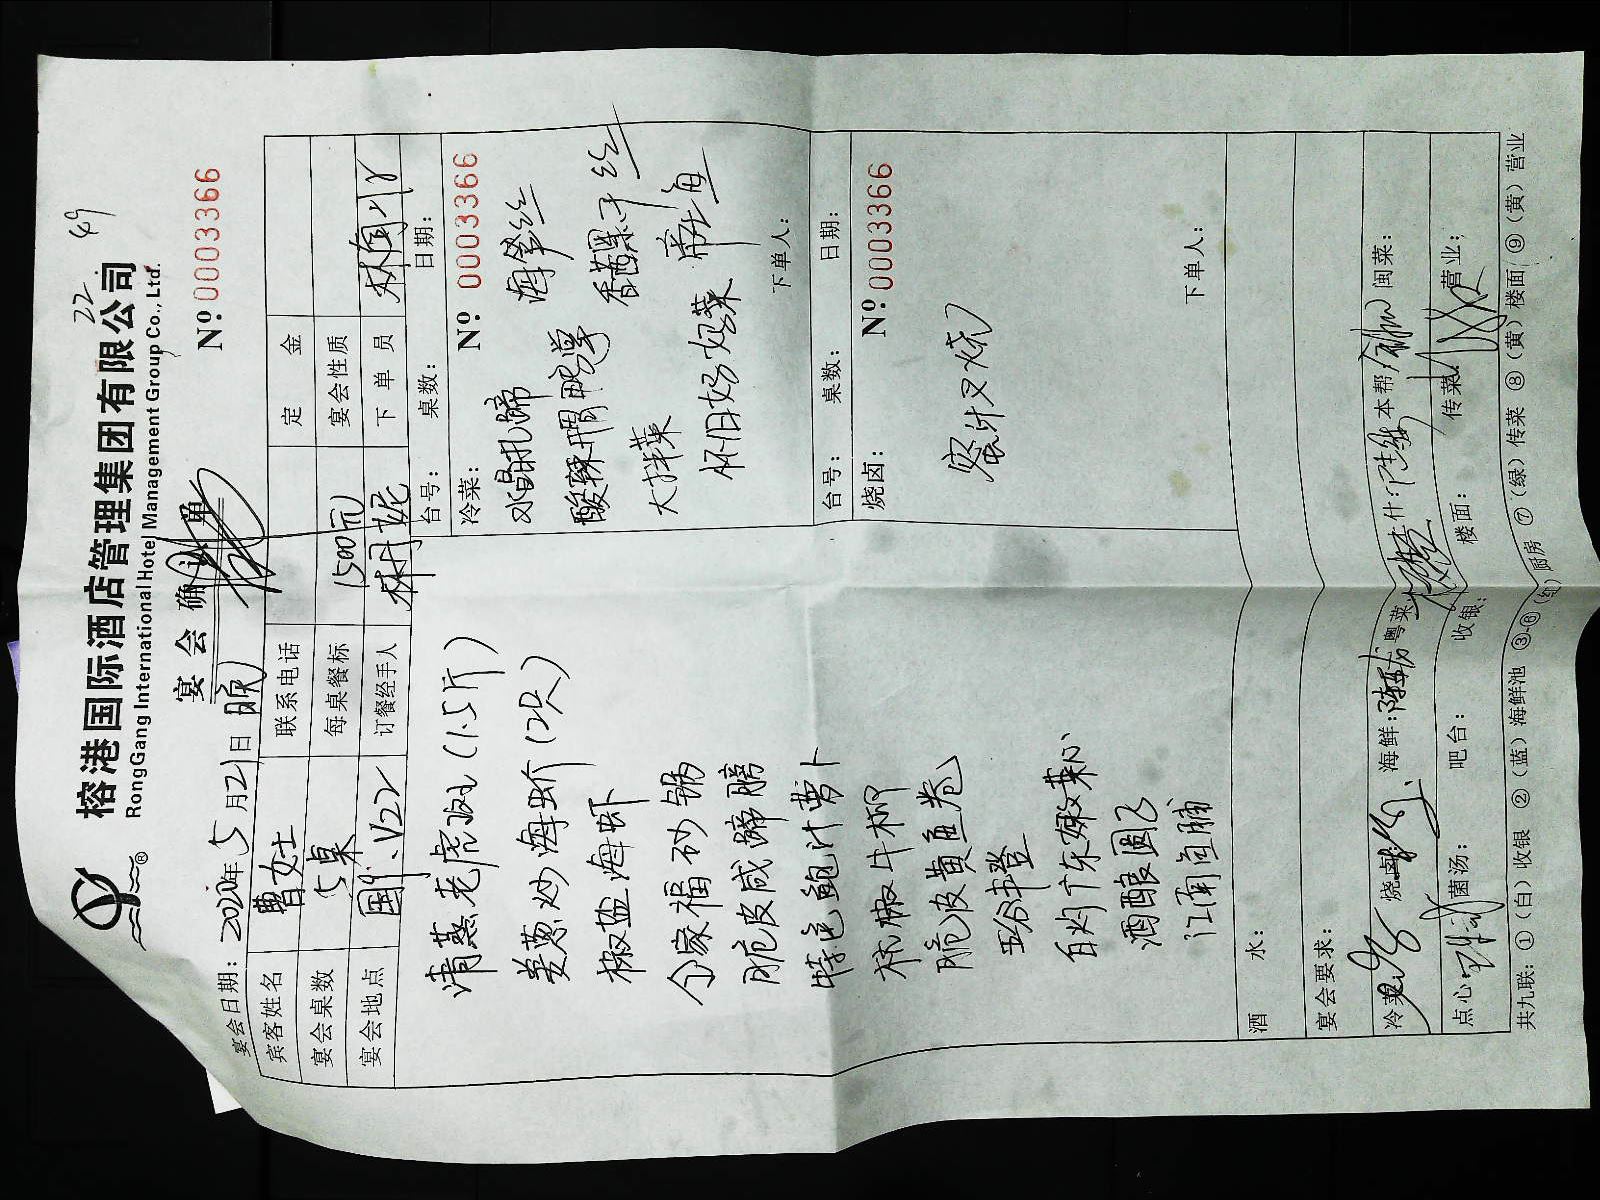 22 49
榕港国际酒店管理集团有限公司
RongGang International Hotel Management Group Co., Ltd.
®
宴会确认单
Nº 0003366
宴会日期：2020年5月21日 晚
宾客姓名 曹女士 联系电话 定金
宴会桌数 5桌 每桌餐标 1500元 宴会性质
宴会地点 国外.V22 订餐经手人 林丹妮 下单员
清蒸老虎斑（1.5斤）
姜葱炒海蚧（2只）
椒盐海虾
全家福砂锅
脆皮咸蹄膀
特色鲍汁萝卜
杭椒牛柳
脆皮黄鱼卷
五谷丰登
白灼广东嫩菜心
酒酿圆子
江南鱼脯
台号： 桌数： 日期：
冷菜： Nº 0003366
水晶扎蹄 海蜇丝
酸辣胃鸭掌 香菌果干丝
大拌菜 膏海
怀旧好炝菜
下单人：
台号： 桌数： 日期：
烧卤： Nº 0003366
蜜汁叉烧
下单人：
酒水：
宴会要求：
冷菜 烧卤 海鲜： 粤菜 什： 本帮 闽菜：
点心 菌汤： 吧台： 收银： 楼面： 传菜 营业：
共九联：①（白）收银 ②（蓝）海鲜池 ③-⑥（红）厨房 ⑦（绿）传菜 ⑧（黄）楼面 ⑨（黄）营业